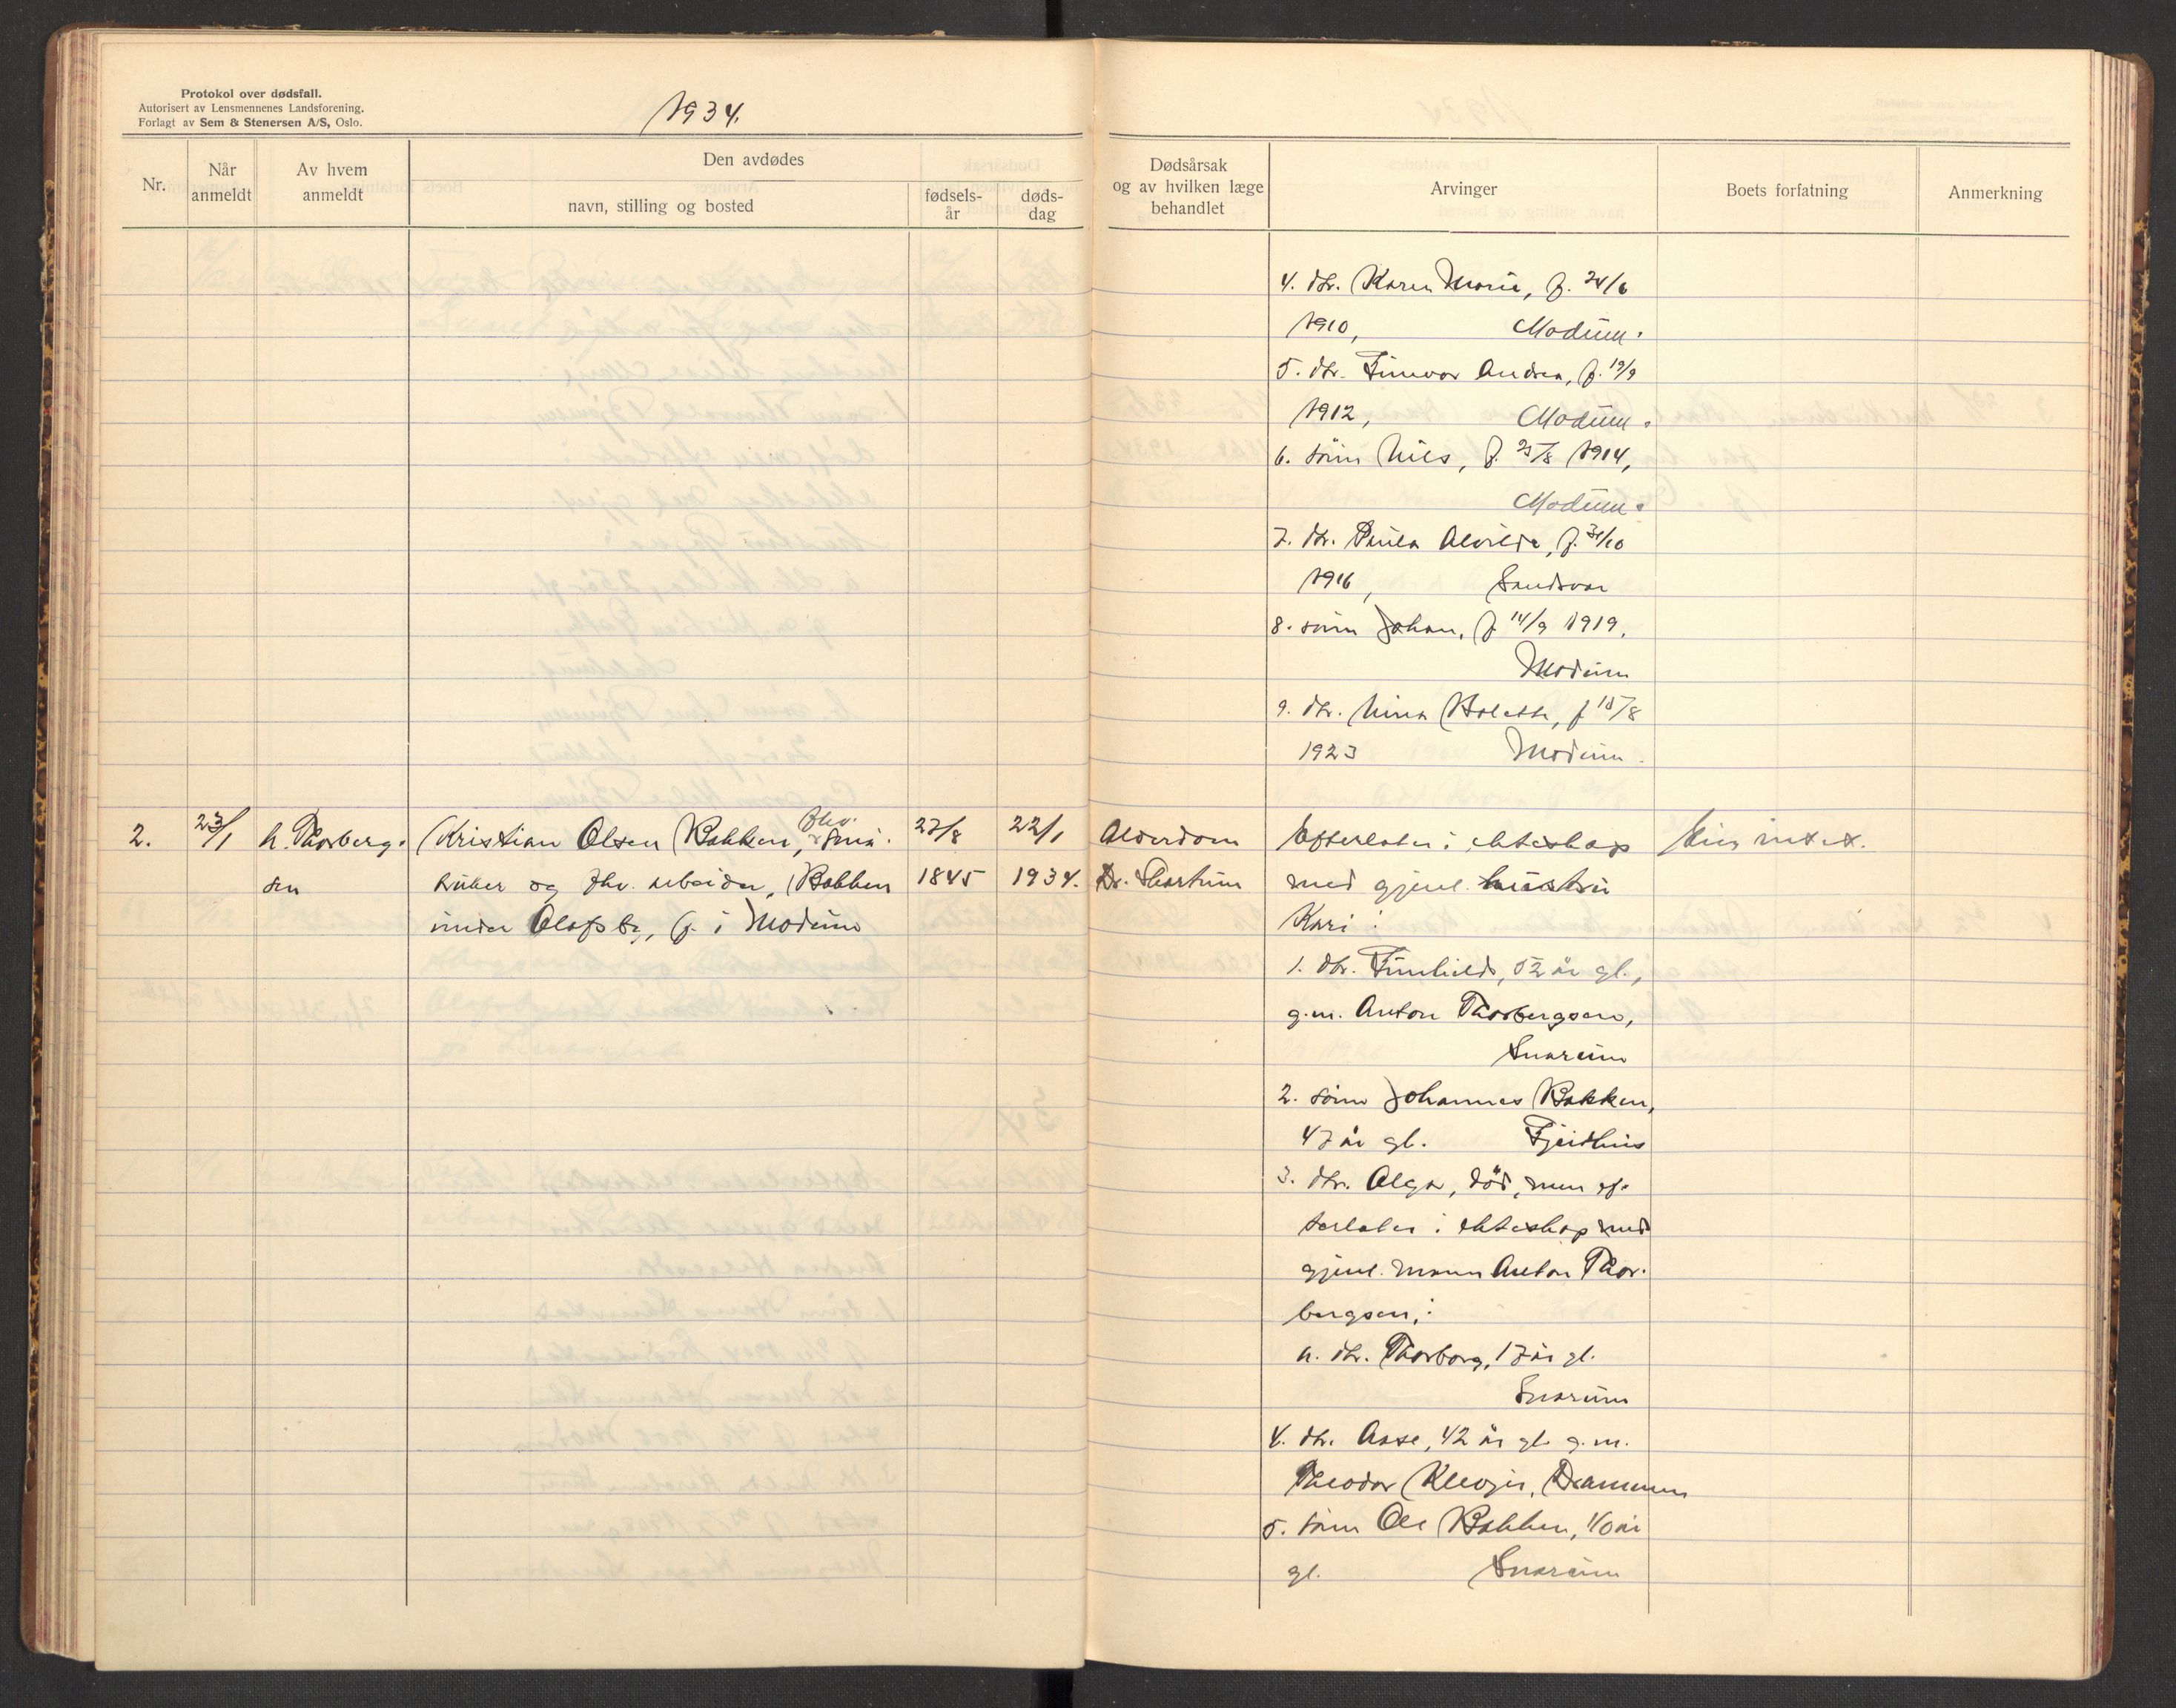 Protokol over dødsfall.
Autorisert av Lensmennenes Landsforening.
Forlagt av Sem & Stenersen A/S, Oslo.
1934.
Nr.
Når anmeldt
Av hvem anmeldt
Den avdødes
navn, stilling og bosted
fødselsår
dødsdag
Dødsårsak og av hvilken læge behandlet
Arvinger
Boets forfatning
Anmerkning
4. dtr. Karen Marie, f. 24/6
1910, Modum.
5. dtr. Gunvor Andrea, f. 19/9
1912, Modum.
6. sønn Nils, f. 25/8 1914,
Modum.
7. dtr. Paula Alvilde, f. 31/10
1916, Sandsvær
8. sønn Johan, f. 14/9 1919,
Modum
9. dtr. Nina Bolette, f 15/8
1923 Modum.
2. 23/1 A. Thorberg- Kristian Olsen Bakken, fhv. små- 27/8 22/1 Alderdom Efterlater i ekteskap Eier intet.
sen bruker og fhv. arbeider, Bakken 1845 1934. Dr. Thortum med gjenl. hustru
under Olafsby, f. i Modum Kari:
1. dtr. Gunhild, 52 år gl.,
g.m. Anton Thorbergsen,
Snarum
2. sønn Johannes Bakken,
47 år gl. Geithus
3. dtr. Olga, død, men ef-
terlater i ekteskap med
gjenl. mann Anton Thor-
bergsen:
a. dtr. Thorborg, 17 år gl.
Snarum
4. dtr. Aase, 42 år gl. g.m.
Theodor Klevjer, Drammen
5. sønn Ole Bakken, 40 år
gl. Snarum